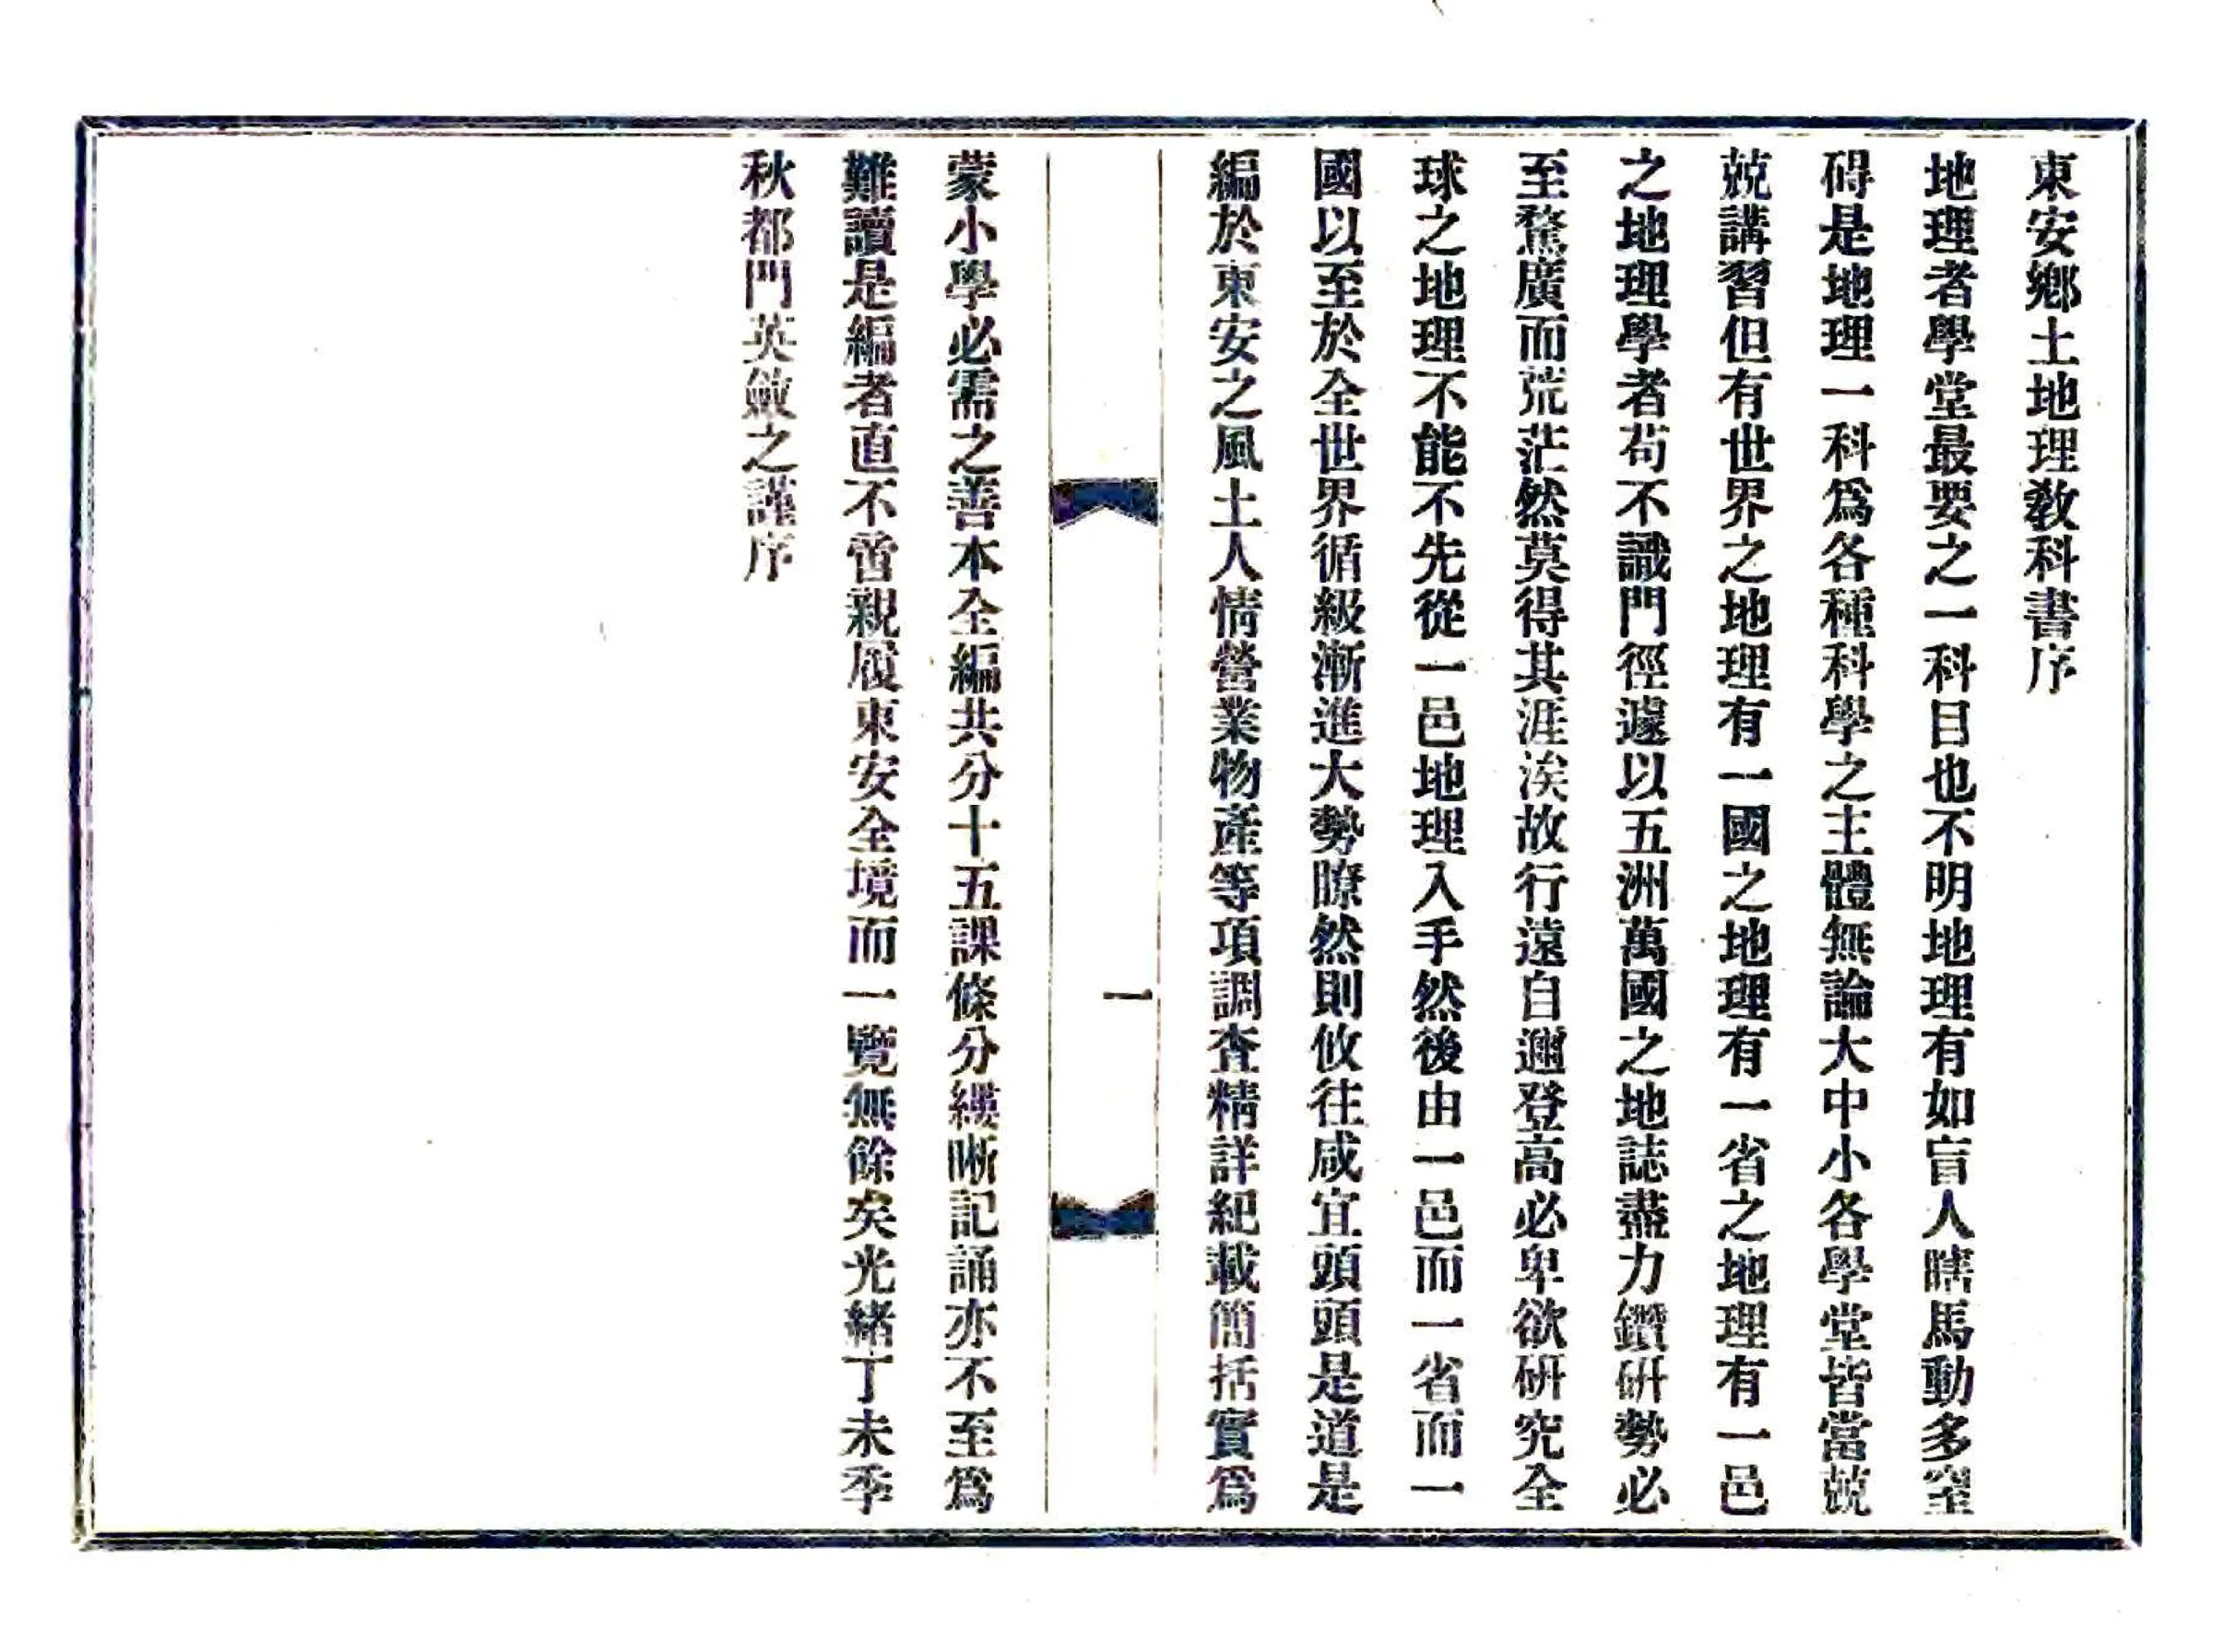 東安鄉土地理敎科書序
地理者學堂最要之一科目也不明地理有如盲人瞎馬動多窒
碍是地理一科爲各種科學之主體無論大中小各學堂皆當兢
兢講習但有世界之地理有一國之地理有一省之地理有一邑
之地理學者苟不識門徑遽以五洲萬國之地誌盡力鑽硏勢必
至騖廣而荒茫然莫得其涯涘故行遠自邇登高必卑欲硏究全
球之地理不能不先從一邑地理入手然後由一邑而一省而一
國以至於全世界循級漸進大勢瞭然則攸往咸宜頭頭是道是
編於東安之風土人情營業物產等項調查精詳紀載簡括實爲
一
蒙小學必需之善本全編共分十五課條分縷晰記誦亦不至爲
難讀是編者直不啻親履東安全境而一覽無餘矣光緒丁未季
秋都門英斂之謹序